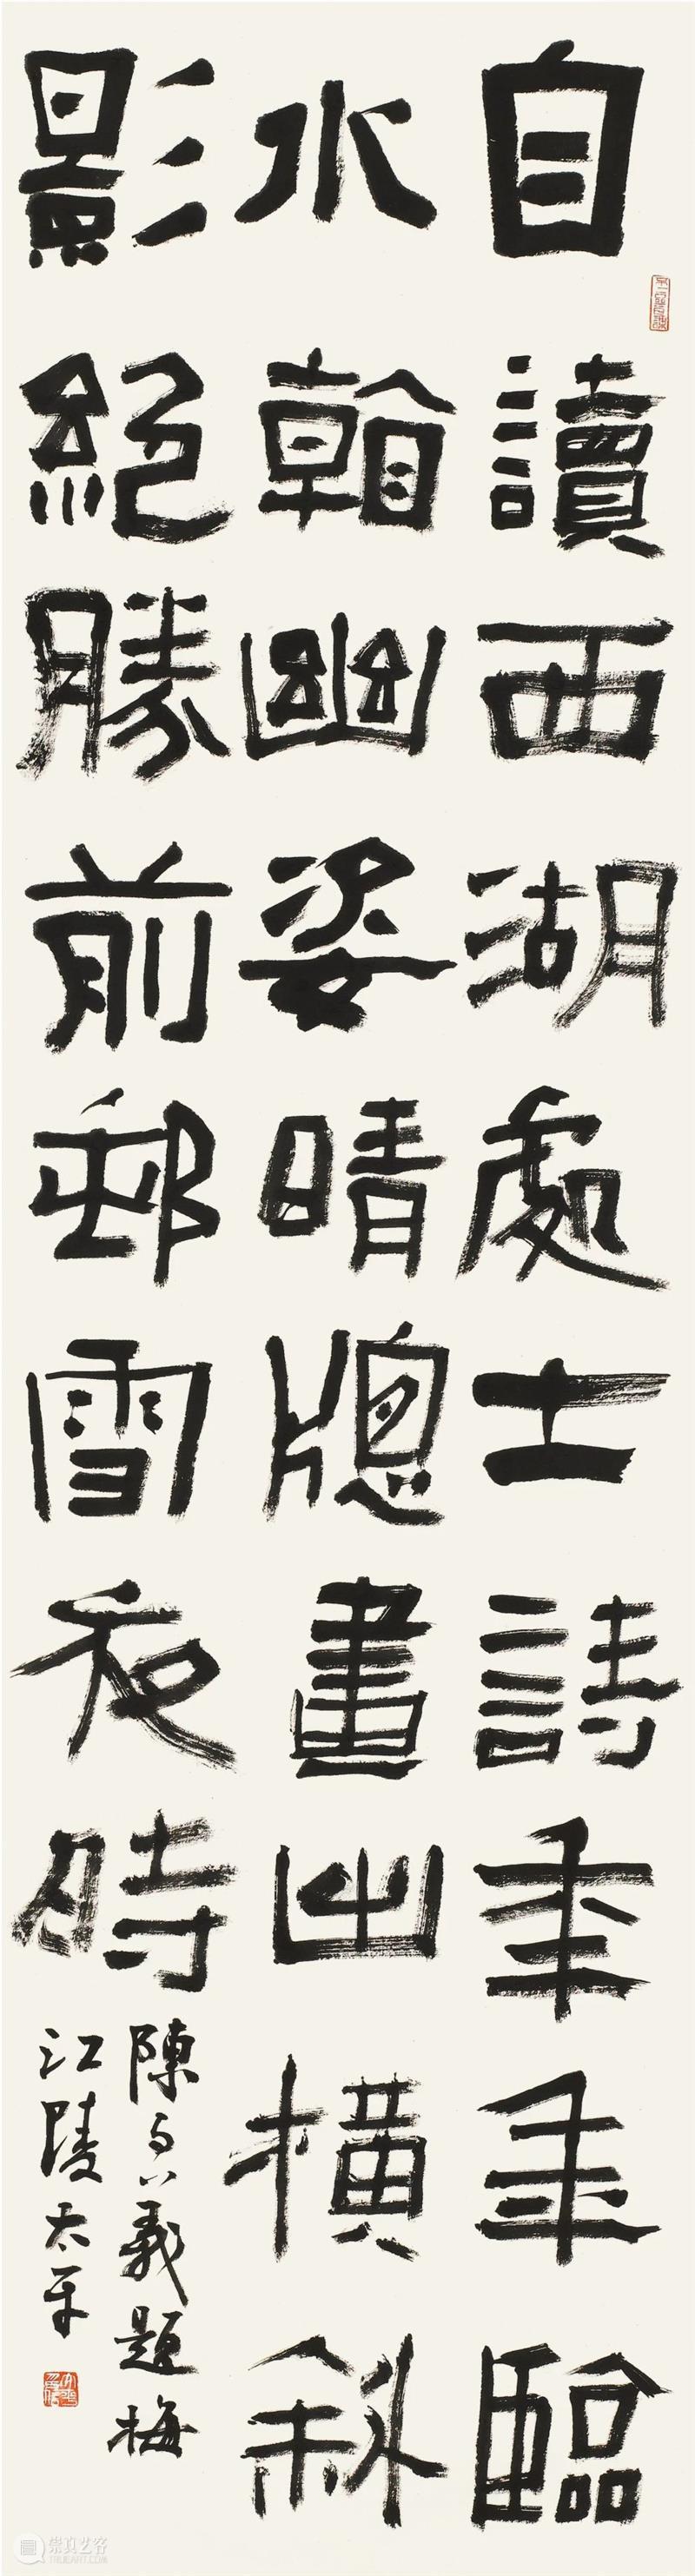 自讀西湖處士詩年年臨
水看幽姿晴牕畫出橫斜
影絕勝前邨雪夜時
陳与義題梅
江陵太平
崇真艺客